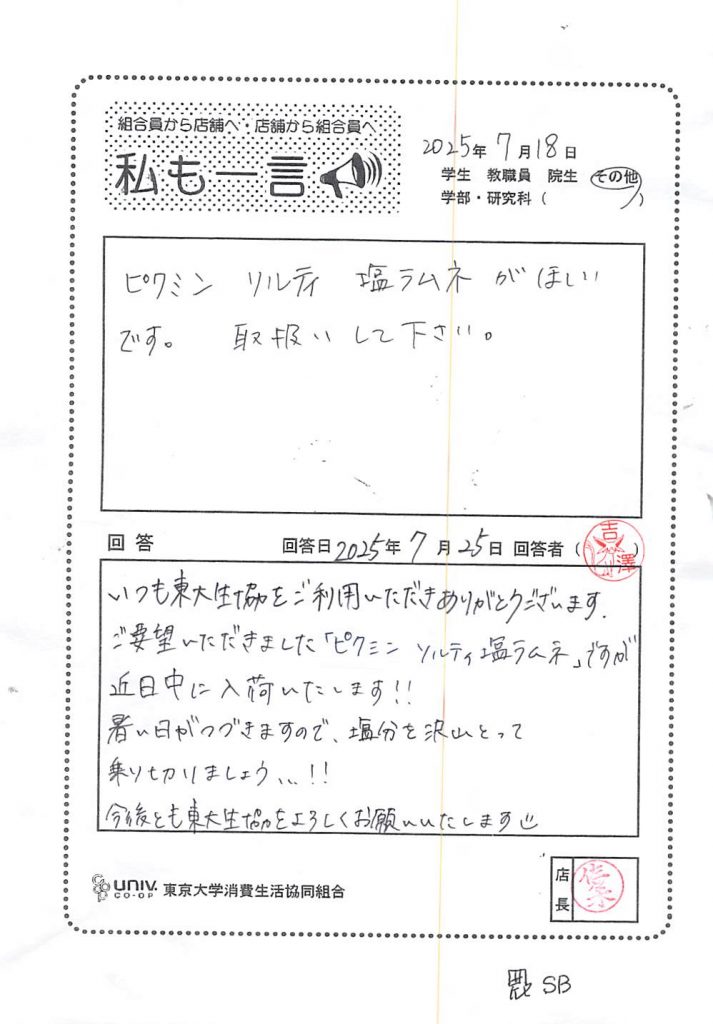 組合員から店舗へ・店舗から組合員へ
私も一言
2025年 7月18日
学生 教職員 院生 その他
学部・研究科（ ）
ピクミン ソルティ 塩ラムネ がほしい
です。 取扱いして下さい。
回答 回答日2025年7月25日 回答者（吉澤）
いつも東大生協をご利用いただきありがとうございます。
ご要望いただきました「ピクミン ソルティ塩ラムネ」ですが
近日中に入荷いたします!!
暑い日がつづきますので、塩分を沢山とって
乗り切りましょう...!!
今後とも東大生協をよろしくお願いいたします
UNIV. CO-OP 東京大学消費生活協同組合
店長
SB